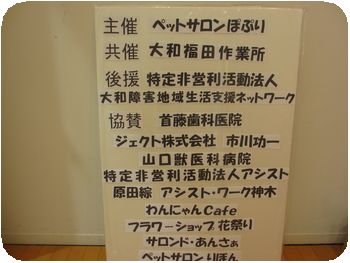 主催 ペットサロンぽぷり
共催 大和福田作業所
後援 特定非営利活動法人
大和障害地域生活支援ネットワーク
協賛 首藤歯科医院
ジェクト株式会社 市川功一
山口獣医科病院
特定非営利活動法人アシスト
原田綜 アシスト・ワーク神木
わんにゃんCafe
フラワーショップ花祭り
サロンド・あんさぁ
ペットサロンりぼん